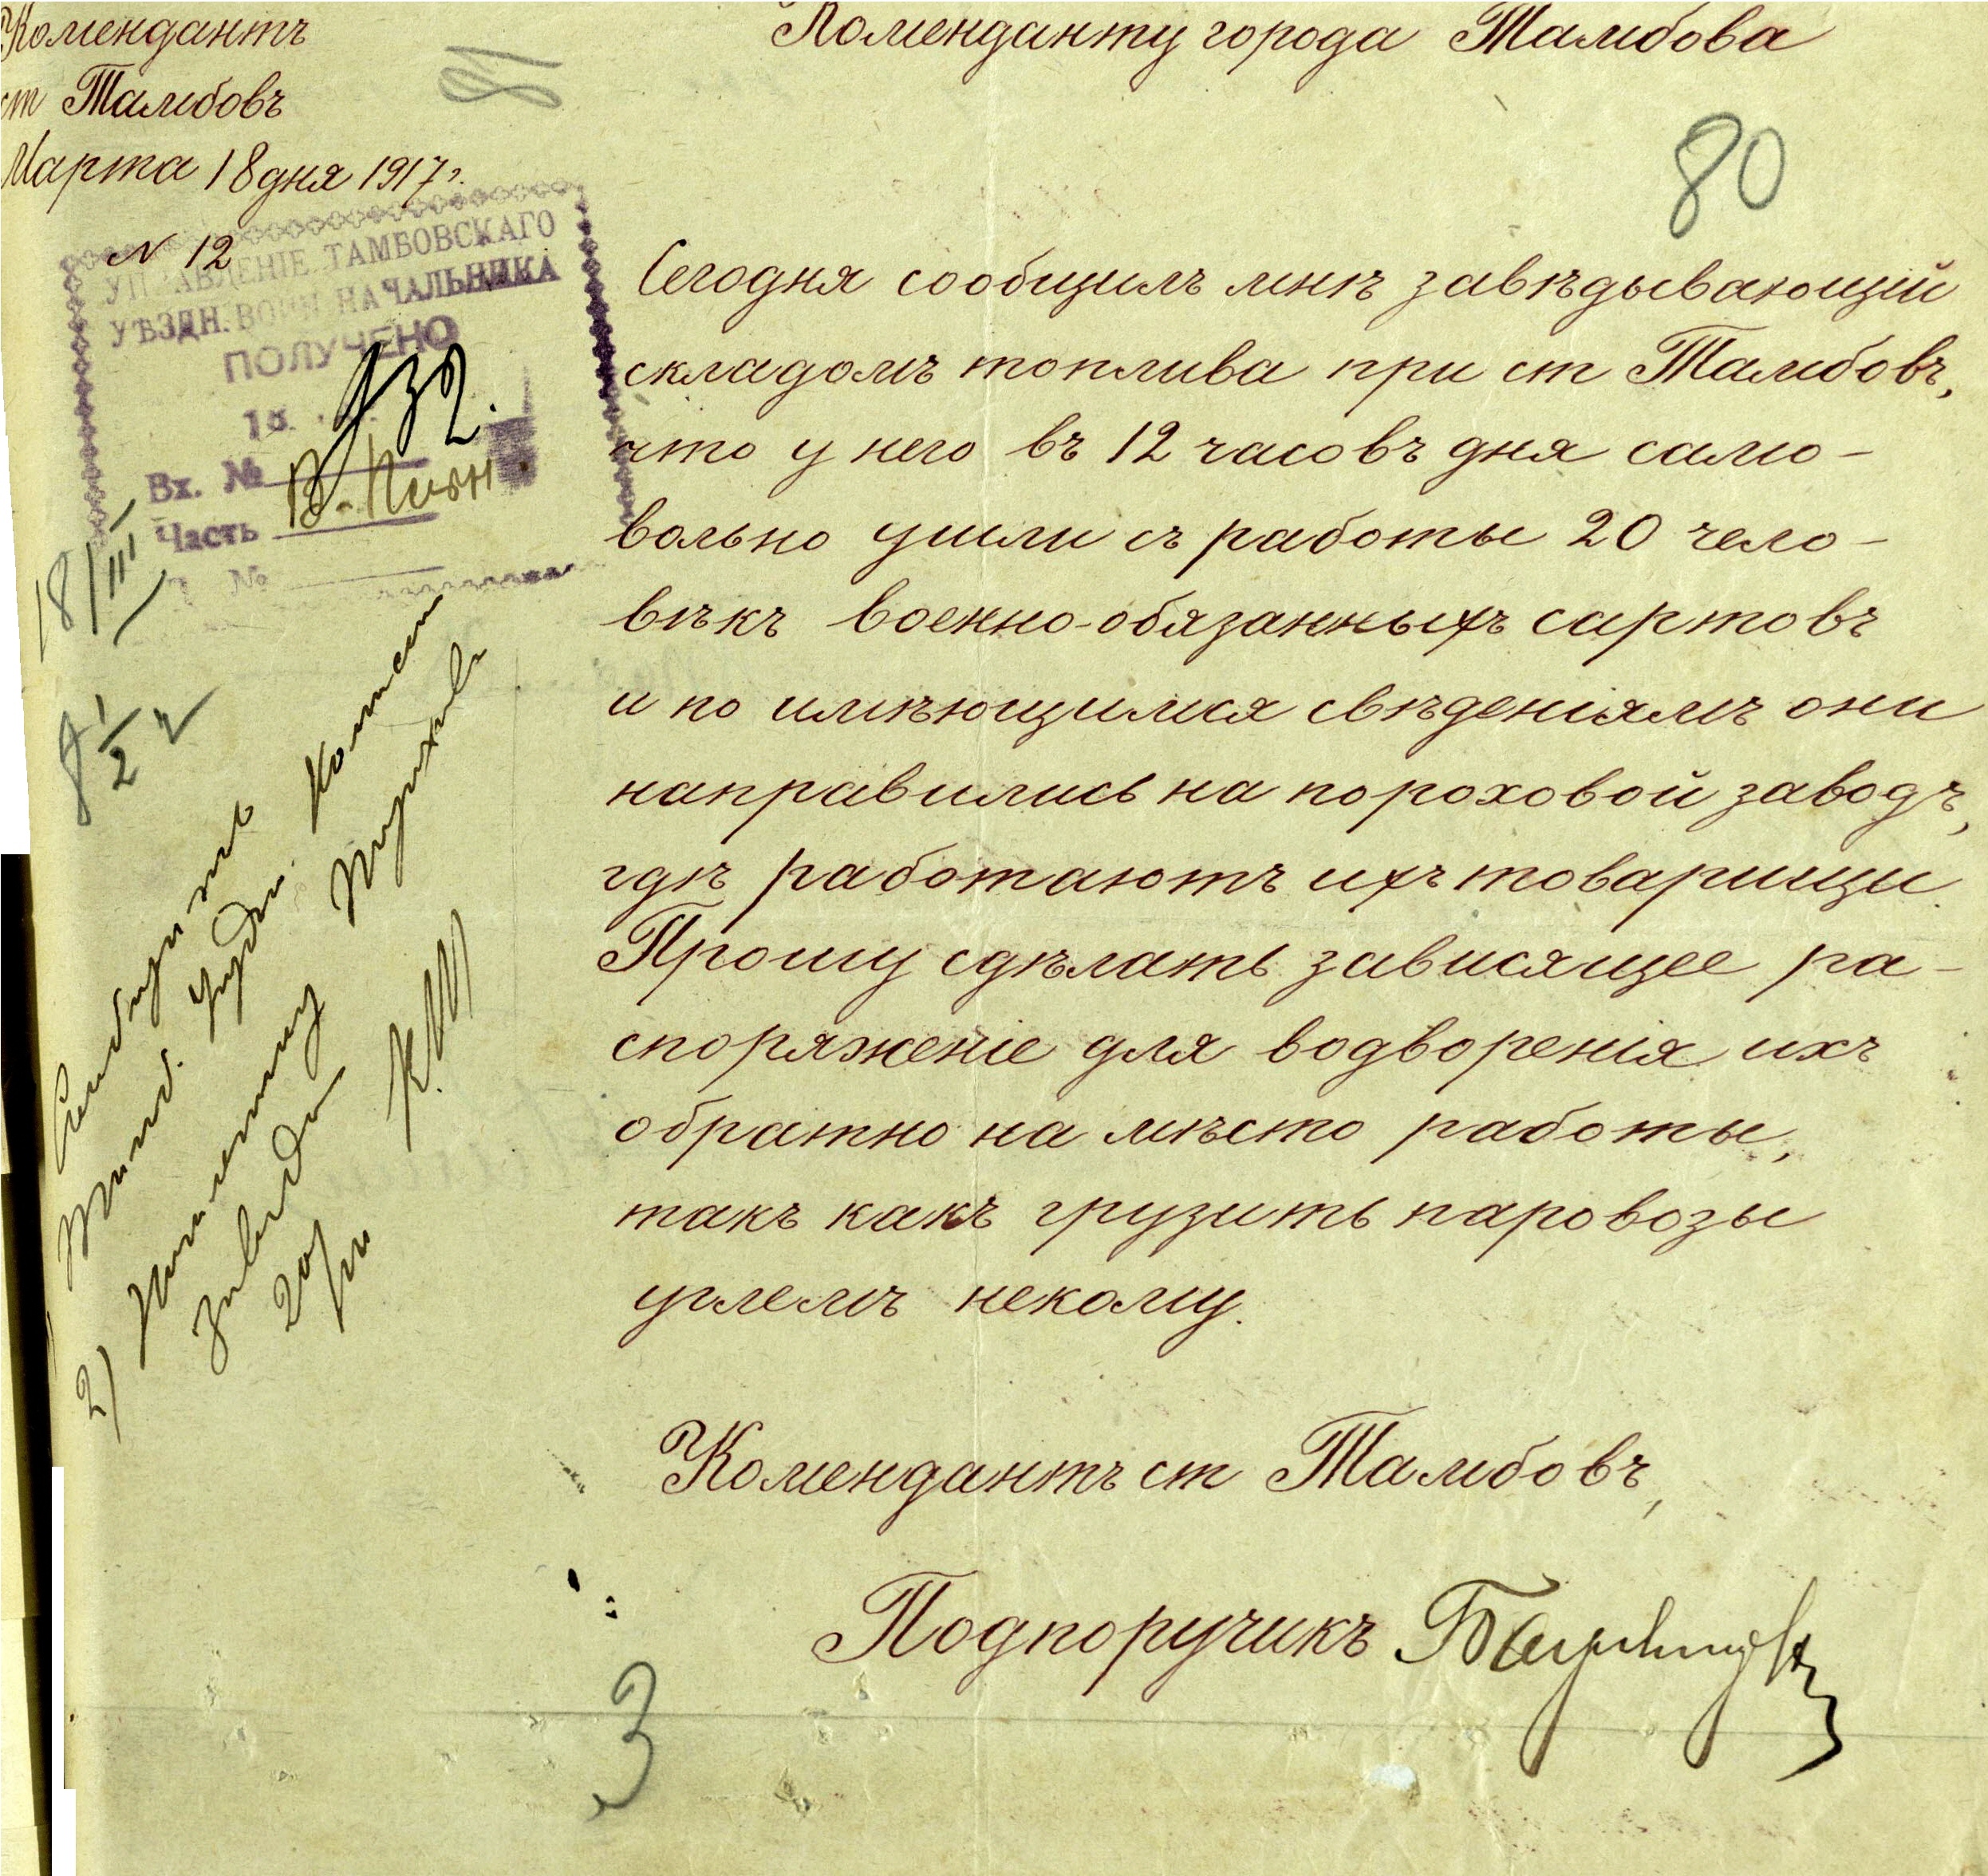 Комендантъ
ст Тамбовъ
Марта 18 дня 1917 г.
N 12
Коменданту города Тамбова
80
УПРАВЛЕНІЕ ТАМБОВСКАГО
УѢЗДН. ВОИН. НАЧАЛЬНИКА
ПОЛУЧЕНО
18.
932.
Вх. №
Часть
№
18/III
8 1/2 ч
Сегодня сообщилъ мнѣ завѣдывающій
складомъ топлива при ст Тамбовъ,
что у него въ 12 часовъ дня само-
вольно ушли съ работы 20 чело-
вѣкъ военно-обязанныхъ сартовъ
и по имѣющимся свѣдѣніямъ они
направились на пороховой заводъ,
гдѣ работаютъ ихъ товарищи.
Прошу сдѣлать зависящее ра-
споряженіе для водворенія ихъ
обратно на мѣсто работы,
такъ какъ грузить паровозы
углемъ некому.
Комендантъ ст Тамбовъ,
Подпоручикъ
2)
20/III
3